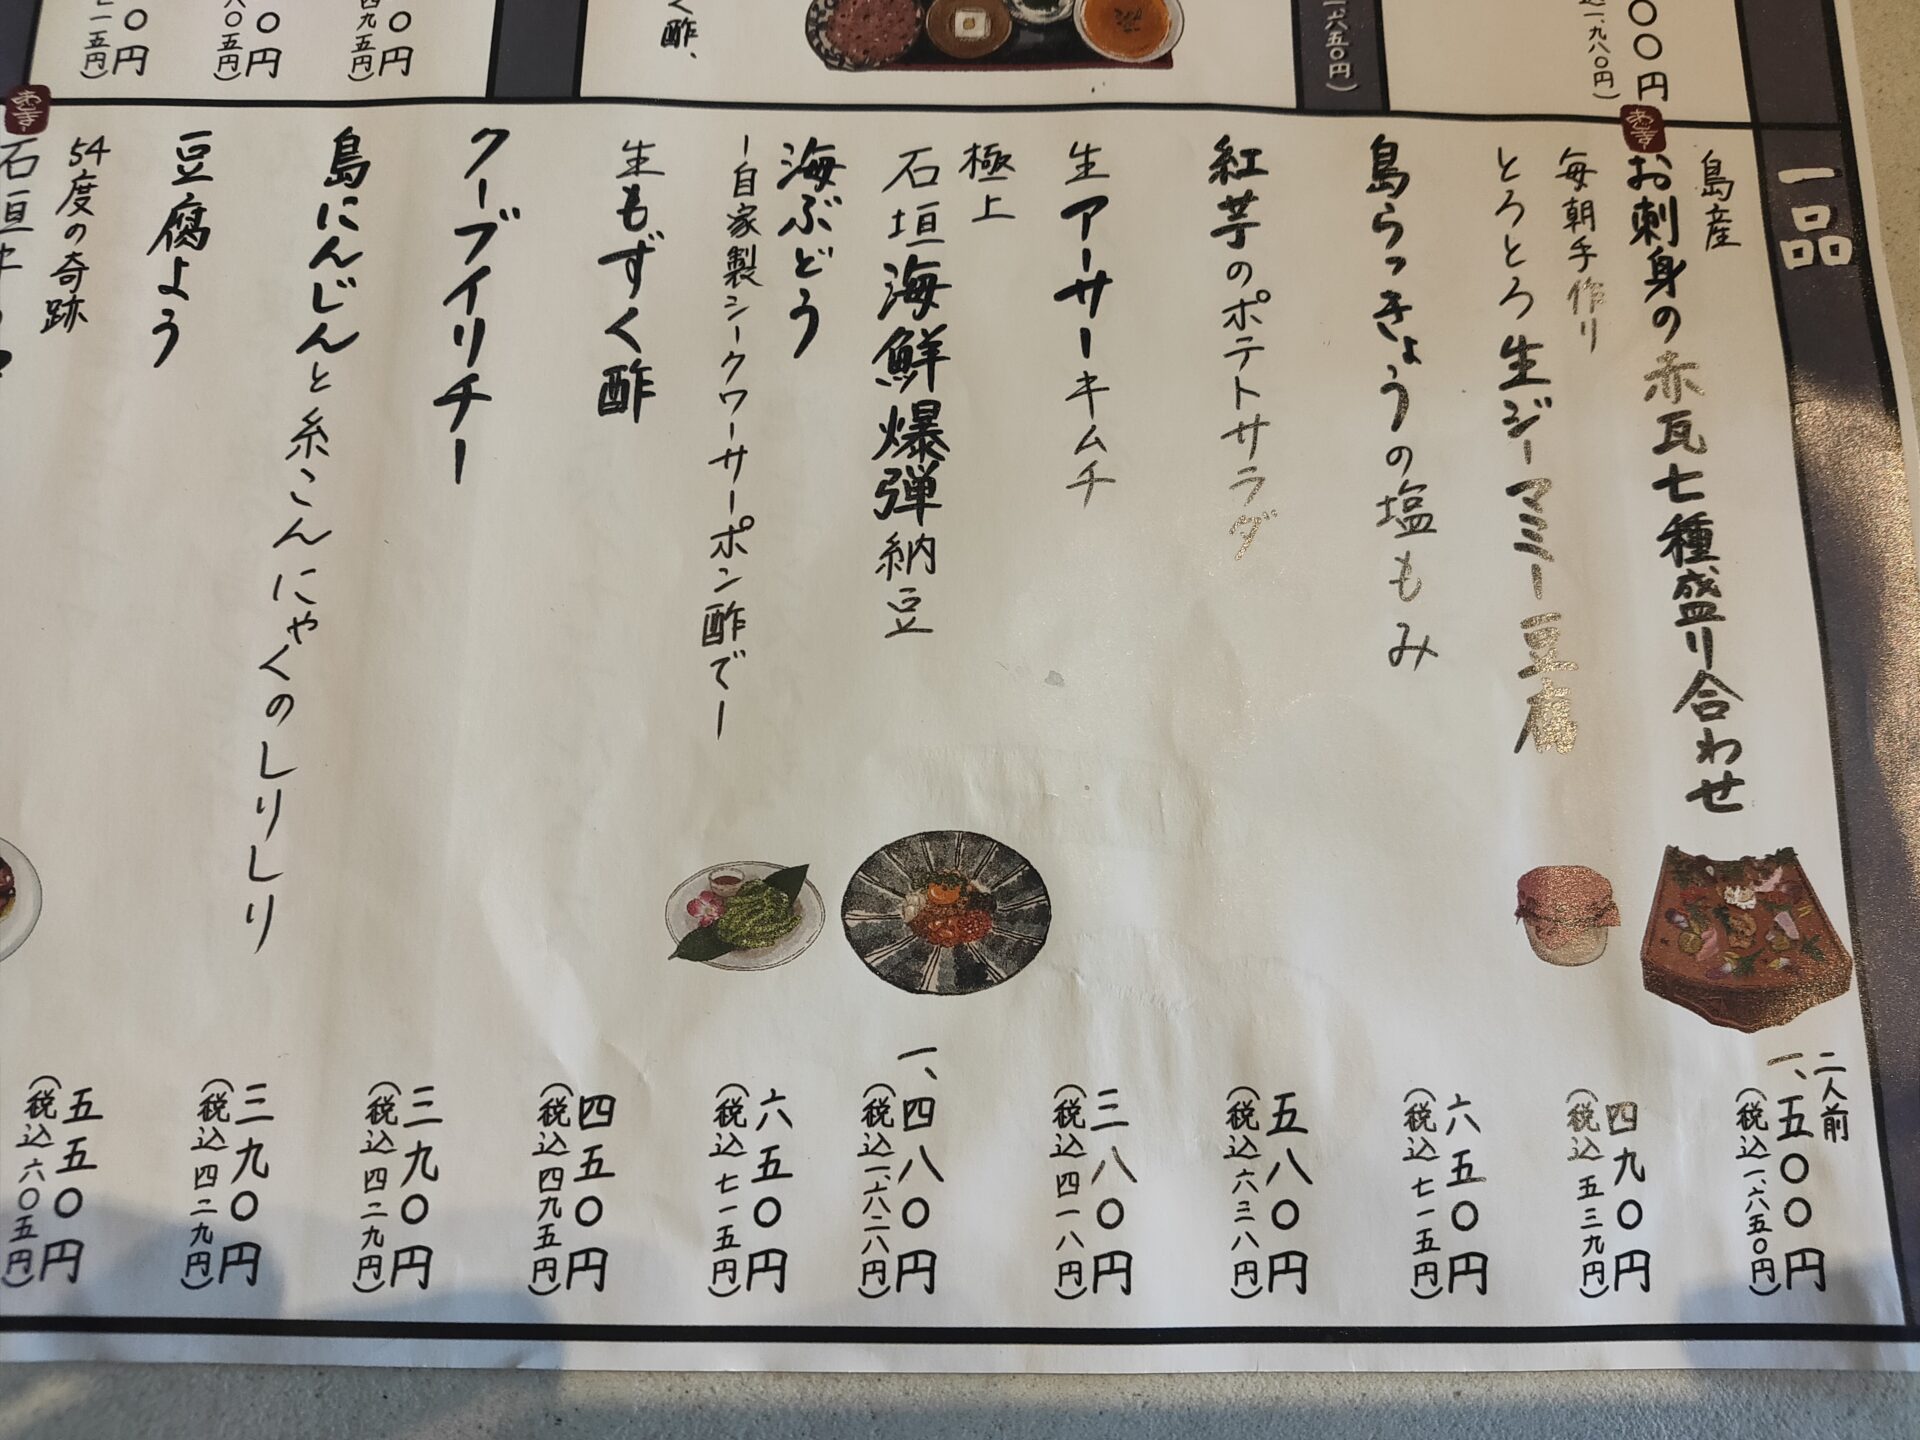 く酢、
一品
島産
お刺身の赤瓦七種盛り合わせ
二人前
一、五〇〇円
(税込一、六五〇円)
毎朝手作り
とろとろ生ジーマミー豆腐
四九〇円
(税込五三九円)
島らっきょうの塩もみ
六五〇円
(税込七一五円)
紅芋のポテトサラダ
五八〇円
(税込六三八円)
生アーサーキムチ
三八〇円
(税込四一八円)
極上
石垣海鮮爆弾納豆
一、四八〇円
(税込一、六二八円)
海ぶどう
ー自家製シークワーサーポン酢でー
六五〇円
(税込七一五円)
生もずく酢
四五〇円
(税込四九五円)
クーブイリチー
三九〇円
(税込四二九円)
島にんじんと糸こんにゃくのしりしり
三九〇円
(税込四二九円)
豆腐よう
五五〇円
(税込六〇五円)
54度の奇跡